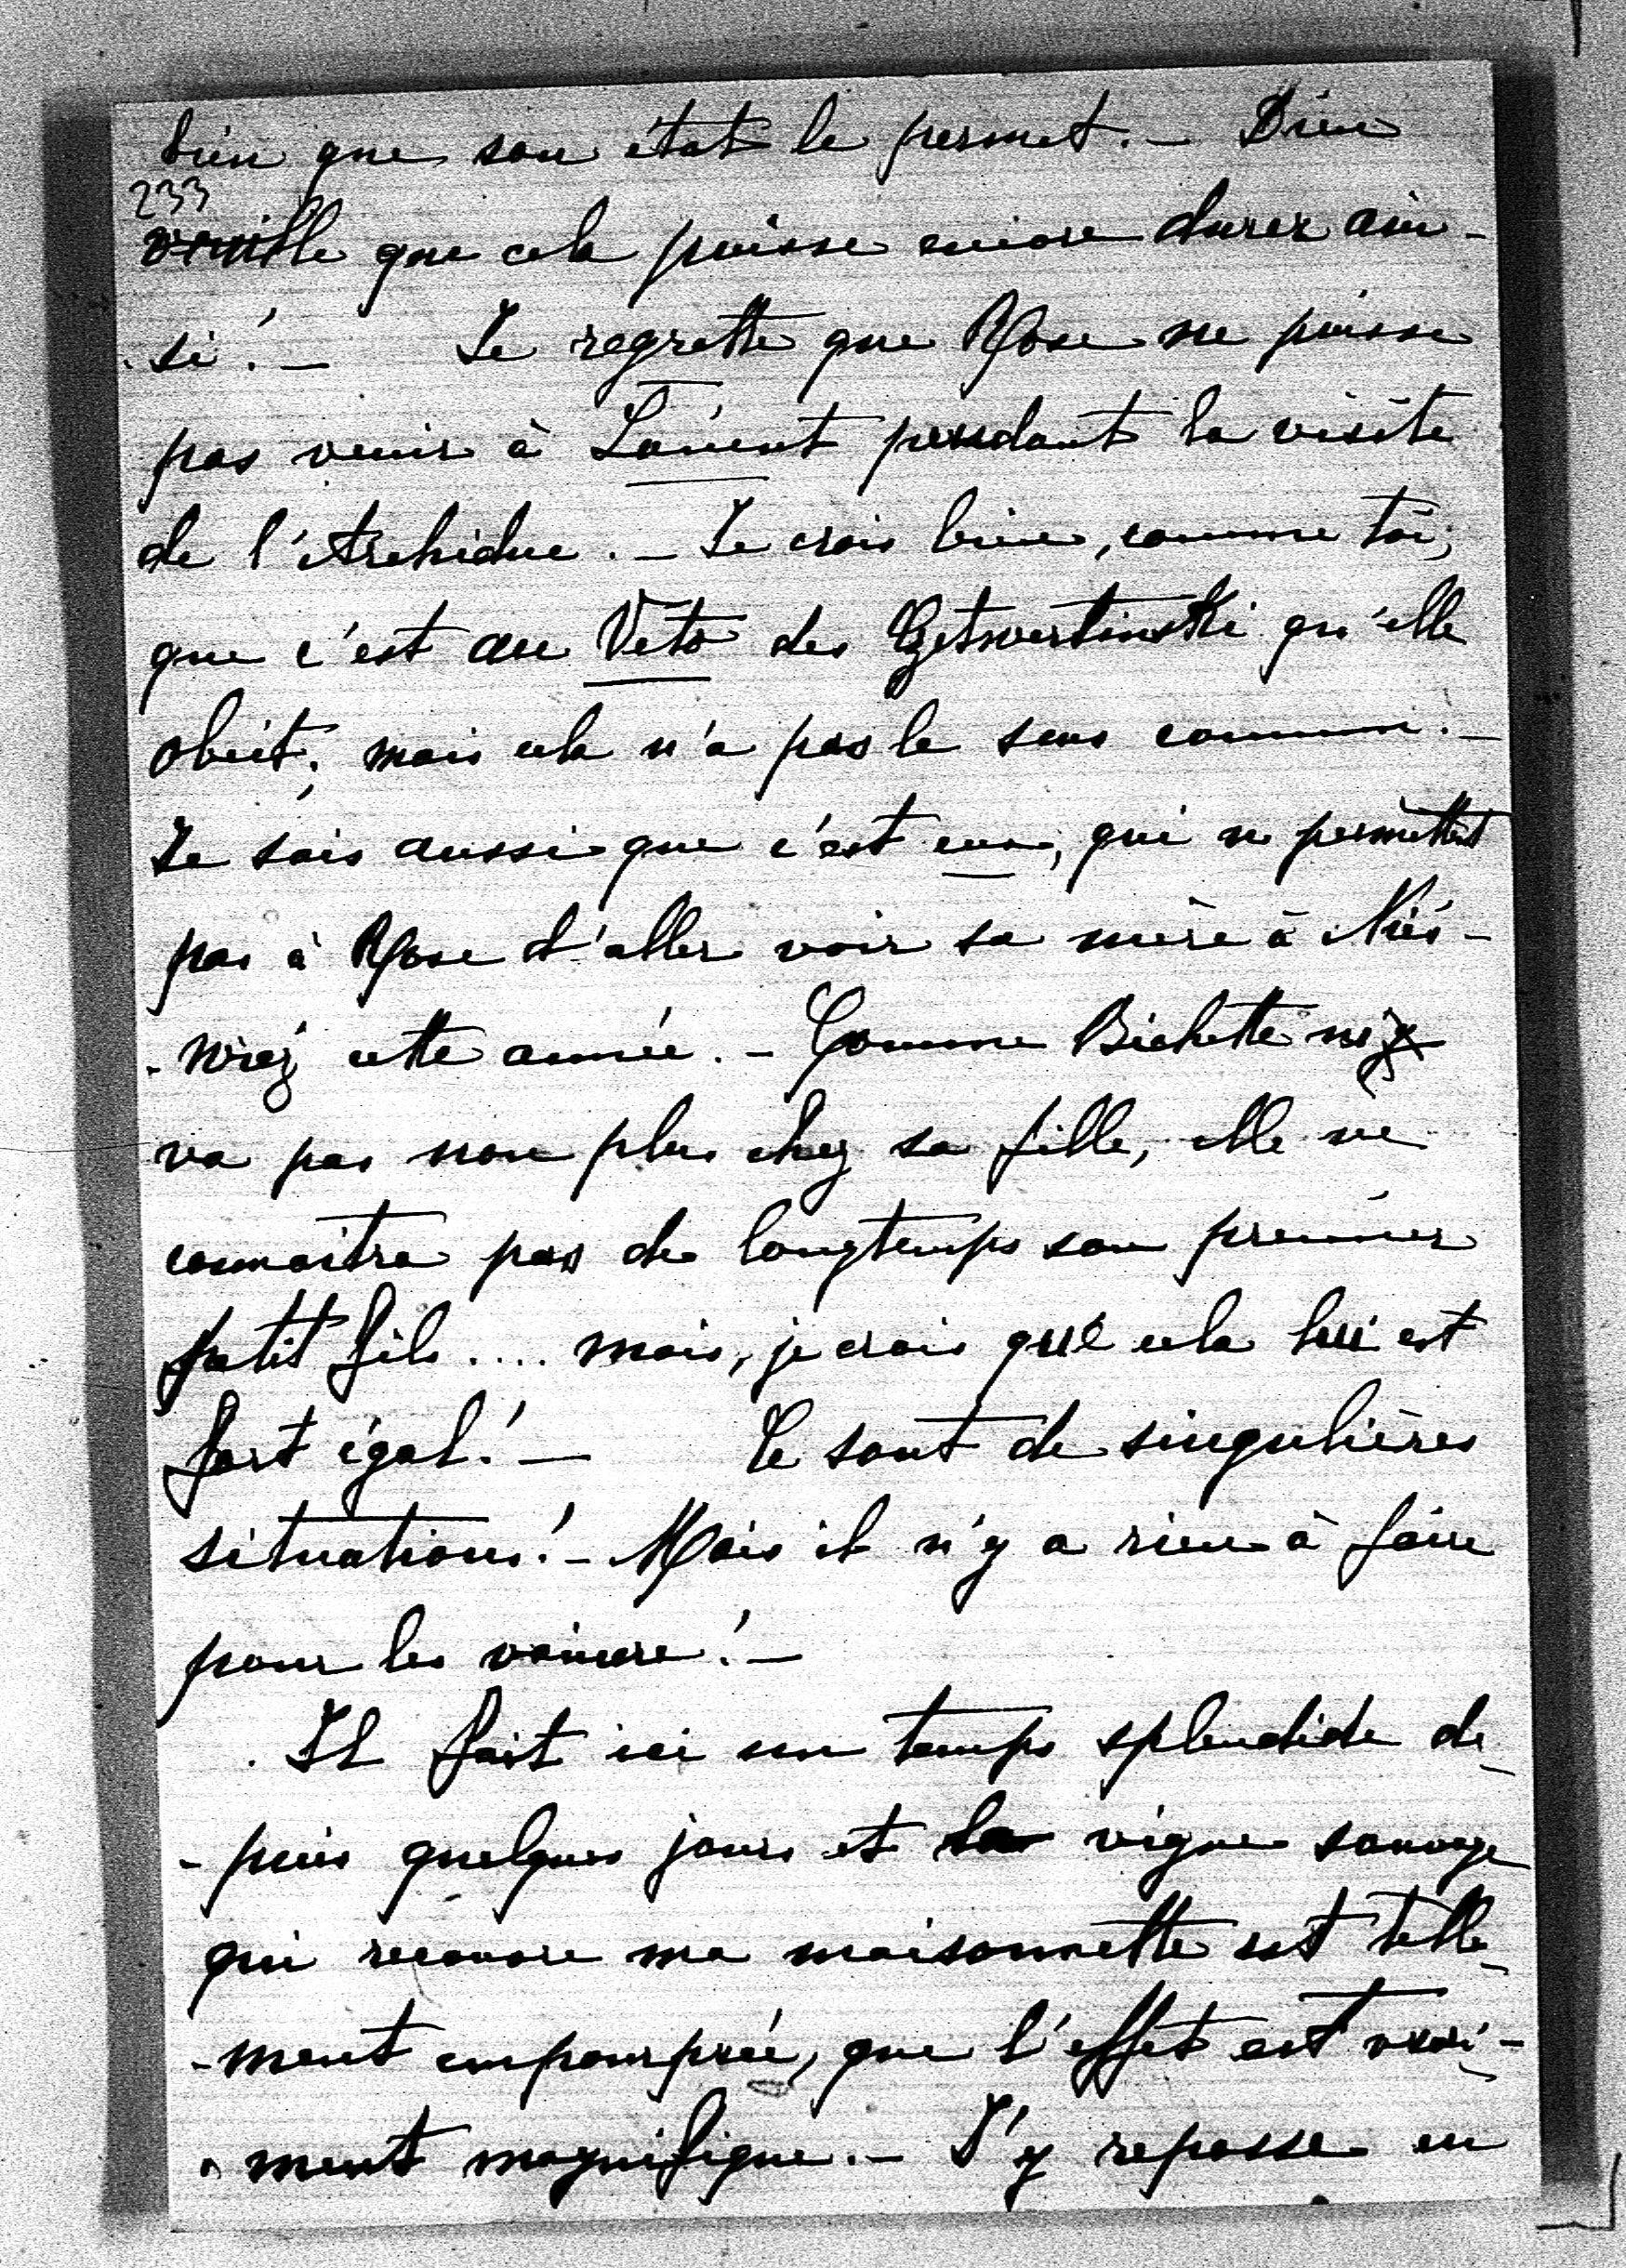 bien que son état le permet. — Dieu
233
veuille que cela puisse encore durer ain-
-si! — Je regrette que Rose ne puisse
pas venir à Łańcut pendant la visite
de l'Archiduc. — Je crois bien, comme toi,
que c'est au Veto des Czetwertinski qu'elle
obéit; mais cela n'a pas le sens commun. —
Je sais aussi que c'est eux, qui ne permettent
pas à Rose d'aller voir sa mère à Nies-
-wież cette année. — Comme Bichette n'y
va pas non plus chez sa fille, elle ne
connaitra pas de longtemps son premier
petit fils .... mais, je crois que cela lui est
fort égal! — Ce sont de singulières
situations! — Mais il n'y a rien à faire
pour les vaincre! —
Il fait ici un temps splendide de-
-puis quelques jours et la vigne sauvage
qui recouvre ma maisonnette est telle-
-ment empourprée, que l'effet est vrai-
-ment magnifique. — J'y repasse en